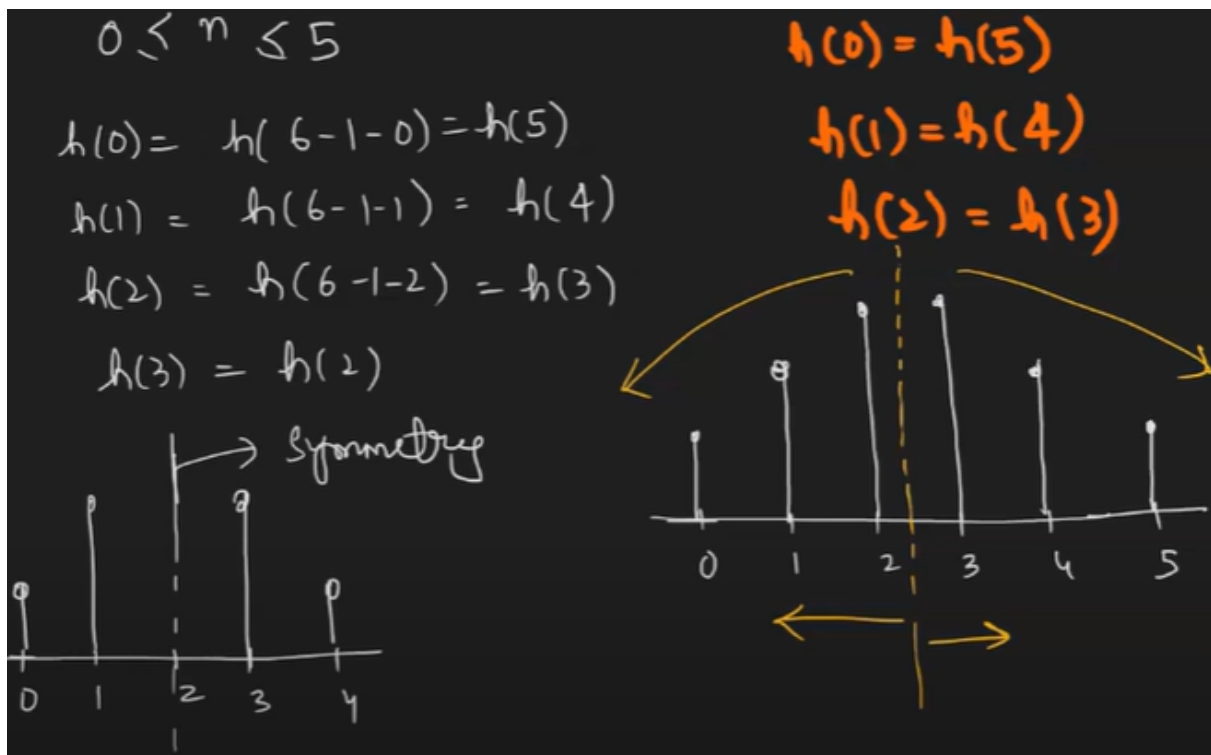 0 ≤ n ≤ 5
h(0) = h(6-1-0) = h(5)
h(1) = h(6-1-1) = h(4)
h(2) = h(6-1-2) = h(3)
h(3) = h(2)
Symmetry
0 1 2 3 4
h(0) = h(5)
h(1) = h(4)
h(2) = h(3)
0 1 2 3 4 5